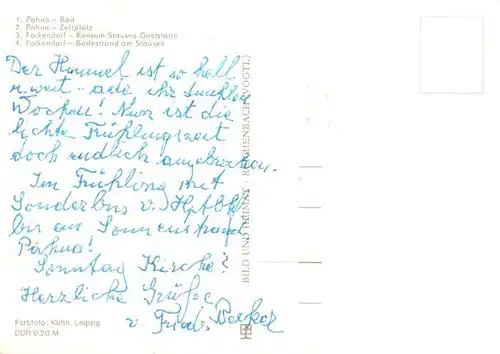 1. Pahna – Bad
2. Pahna – Zeltplatz
3. Fockendorf – Konsum-Stausee-Gaststätte
4. Fockendorf – Badestrand am Stausee
Der Himmel ist so hell
u. weit - ade ihr dunklen
Wochen! Nun ist die
lichte Frühlingszeit
doch endlich angebrochen.
Im Frühling mit
Sonderbus v. Hptbhf
bis an Sonnenstrand
Pahna!
Sonntag Kirche?
Herzliche Grüße
v. Fried. Becker
Farbfoto: Kühn, Leipzig
DDR 0,20 M
BILD UND HEIMAT · REICHENBACH (VOGTL)